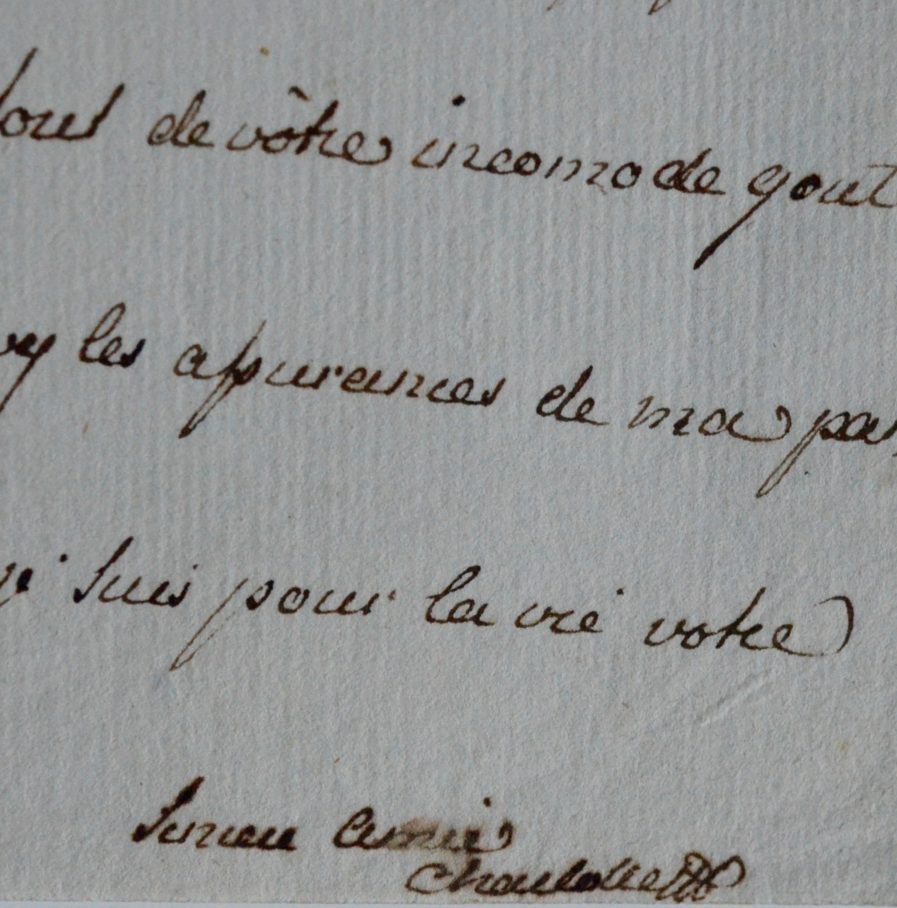 de vôtre incomode gout
les assurances de ma
suis pour la vie votre
amie
Charlotte